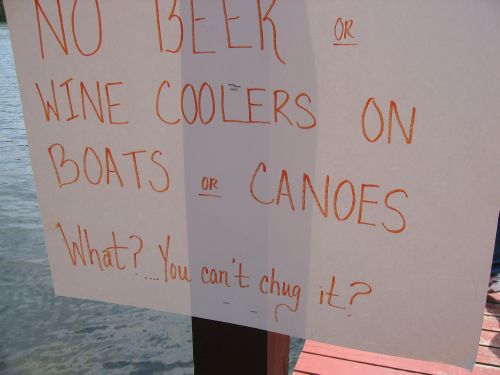 NO BEER OR
WINE COOLERS ON
BOATS OR CANOES
What?....You can't chug it?